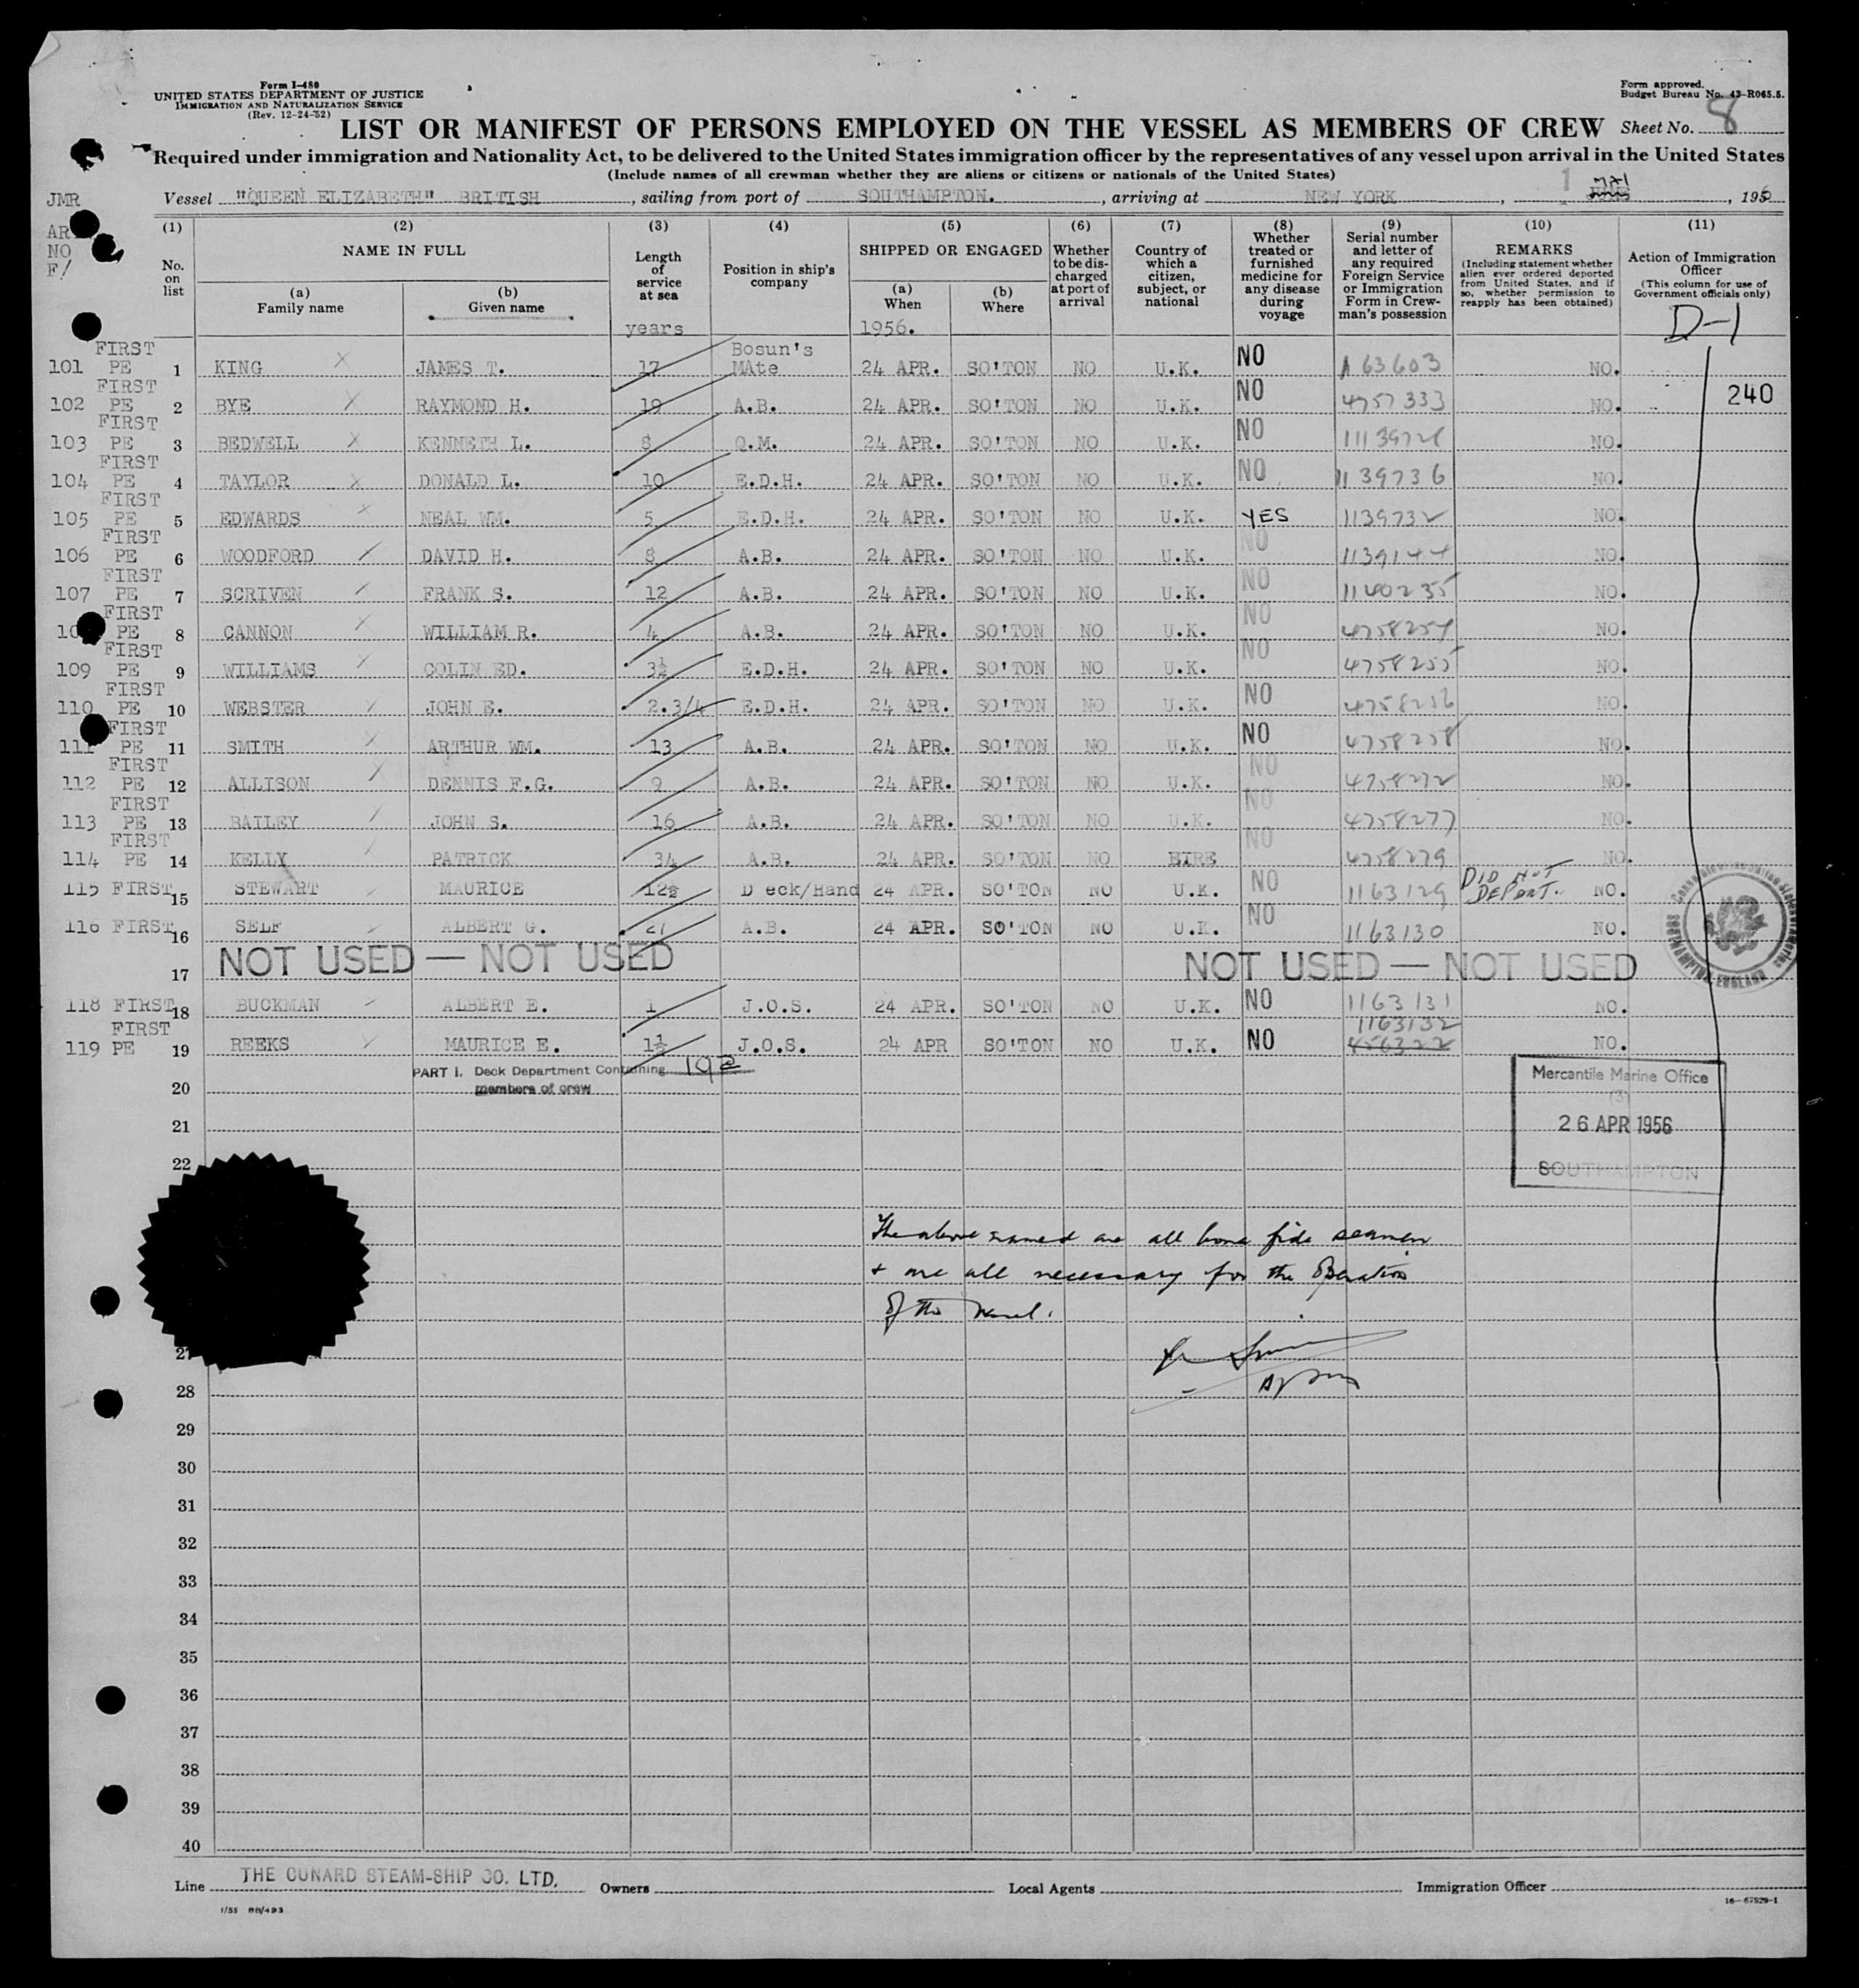 Form I-480
UNITED STATES DEPARTMENT OF JUSTICE
IMMIGRATION AND NATURALIZATION SERVICE
(Rev. 12-24-52)
Form approved.
Budget Bureau No. 43-R065.5.
LIST OR MANIFEST OF PERSONS EMPLOYED ON THE VESSEL AS MEMBERS OF CREW Sheet No. 8
Required under immigration and Nationality Act, to be delivered to the United States immigration officer by the representatives of any vessel upon arrival in the United States
(Include names of all crewman whether they are aliens or citizens or nationals of the United States)
JMR
Vessel "QUEEN ELIZABETH" BRITISH, sailing from port of SOUTHAMPTON., arriving at NEW YORK, 1 MAY, 1956
NO
F/
(1) (2) (3) (4) (5) (6) (7) (8) (9) (10) (11)
No. on list
NAME IN FULL
(a) Family name
(b) Given name
Length of service at sea
years
Position in ship's company
SHIPPED OR ENGAGED
(a) When
(b) Where
1956.
Whether to be discharged at port of arrival
Country of which a citizen, subject, or national
Whether treated or furnished medicine for any disease during voyage
Serial number and letter of any required Foreign Service or Immigration Form in Crewman's possession
REMARKS
(Including statement whether alien ever ordered deported from United States, and if so, whether permission to reapply has been obtained)
Action of Immigration Officer
(This column for use of Government officials only)
D-1
240
101 FIRST PE 1 KING X JAMES T. 17 Bosun's MAte 24 APR. SO'TON NO U.K. NO 63603 NO.
102 FIRST PE 2 BYE X RAYMOND H. 19 A.B. 24 APR. SO'TON NO U.K. NO 4757333 NO.
103 FIRST PE 3 BEDWELL X KENNETH L. 8 Q.M. 24 APR. SO'TON NO U.K. NO NO.
104 FIRST PE 4 TAYLOR X DONALD L. 10 E.D.H. 24 APR. SO'TON NO U.K. NO 1139736 NO.
105 FIRST PE 5 EDWARDS X NEAL WM. 5 E.D.H. 24 APR. SO'TON NO U.K. YES 1139732 NO.
106 FIRST PE 6 WOODFORD X DAVID H. 8 A.B. 24 APR. SO'TON NO U.K. NO 1139144 NO.
107 FIRST PE 7 SCRIVEN FRANK S. 12 A.B. 24 APR. SO'TON NO U.K. NO 1140235 NO.
FIRST PE 8 CANNON WILLIAM R. 4 A.B. 24 APR. SO'TON NO U.K. NO NO.
109 FIRST PE 9 WILLIAMS COLIN ED. 3½ E.D.H. 24 APR. SO'TON NO U.K. NO 4758255 NO.
110 FIRST PE 10 WEBSTER JOHN E. 2.3/4 E.D.H. 24 APR. SO'TON NO U.K. NO 4758256 NO.
111 FIRST PE 11 SMITH ARTHUR WM. 13 A.B. 24 APR. SO'TON NO U.K. NO 4758258 NO.
112 FIRST PE 12 ALLISON DENNIS F.G. 9 A.B. 24 APR. SO'TON NO U.K. NO 4758272 NO.
113 FIRST PE 13 BAILEY JOHN S. 16 A.B. 24 APR. SO'TON NO U.K. NO 4758277 NO.
114 FIRST PE 14 KELLY PATRICK 34 A.B. 24 APR. SO'TON NO EIRE NO 4758279 NO.
115 FIRST 15 STEWART MAURICE 12½ D eck/Hand 24 APR. SO'TON NO U.K. NO 1163129 DID NOT DEPART. NO.
116 FIRST 16 SELF ALBERT G. 27 A.B. 24 APR. SO'TON NO U.K. NO 1163130 NO.
17 NOT USED — NOT USED NOT USED — NOT USED
118 FIRST 18 BUCKMAN ALBERT E. 1 J.O.S. 24 APR. SO'TON NO U.K. NO 1163131 NO.
119 FIRST PE 19 REEKS MAURICE E. 1½ J.O.S. 24 APR SO'TON NO U.K. NO 1163132 456322 NO.
PART I. Deck Department Containing 102
members of crew
20
21
22
Mercantile Marine Office
(3)
26 APR 1956
SOUTHAMPTON
The above named are all bona fide seamen
+ are all necessary for the operation
of the vessel.
28
29
30
31
32
33
34
35
36
37
38
39
40
Line THE CUNARD STEAM-SHIP CO. LTD. Owners Local Agents Immigration Officer
1/55 BB/493
16-67529-1